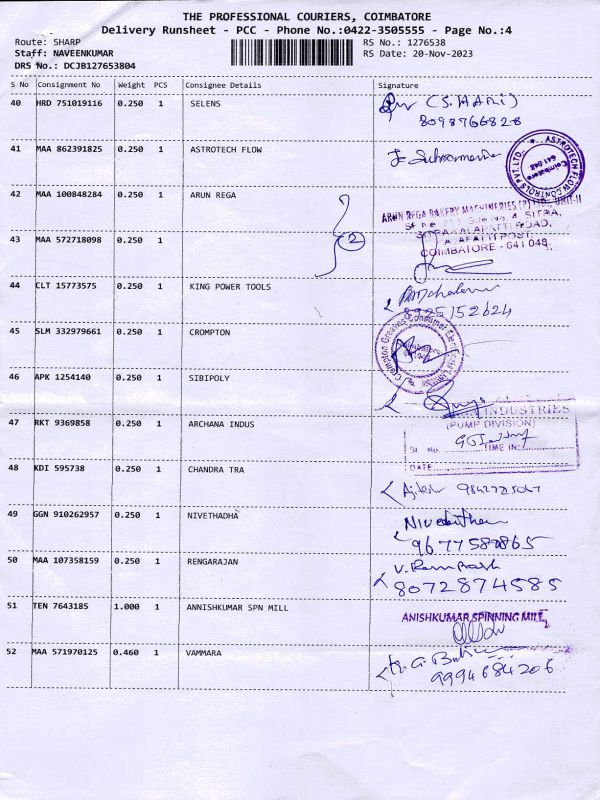 THE PROFESSIONAL COURIERS, COIMBATORE
Delivery Runsheet - PCC - Phone No.:0422-3505555 - Page No.:4
Route: SHARP RS No.: 1276538
Staff: NAVEENKUMAR RS Date: 20-Nov-2023
DRS No.: DCJB127653804
S No Consignment No Weight PCS Consignee Details Signature
40 HRD 751019116 0.250 1 SELENS (S. HARI)
8098766828
41 MAA 862391825 0.250 1 ASTROTECH FLOW
ASTROTECH FLOW CONTROLS PVT. LTD. Coimbatore 641 048
42 MAA 100848284 0.250 1 ARUN REGA
ARUN REGA BAKERY MACHINERIES (P) LTD., UNIT-II
43 MAA 572718098 0.250 1 2
COIMBATORE - 641 048.
44 CLT 15773575 0.250 1 KING POWER TOOLS
8925152624
45 SLM 332979661 0.250 1 CROMPTON
Crompton Greaves Consumer
46 APK 1254140 0.250 1 SIBIPOLY
INDUSTRIES
47 RKT 9369858 0.250 1 ARCHANA INDUS
(PUMP DIVISION)
Sl No. TIME IN:
DATE
48 KDI 595738 0.250 1 CHANDRA TRA
49 GGN 910262957 0.250 1 NIVETHADHA Nivedithan
9677589865
50 MAA 107358159 0.250 1 RENGARAJAN V. Ram
8072874585
51 TEN 7643185 1.000 1 ANNISHKUMAR SPN MILL
ANISHKUMAR SPINNING MILL
52 MAA 571970125 0.460 1 VAMMARA
9994684206